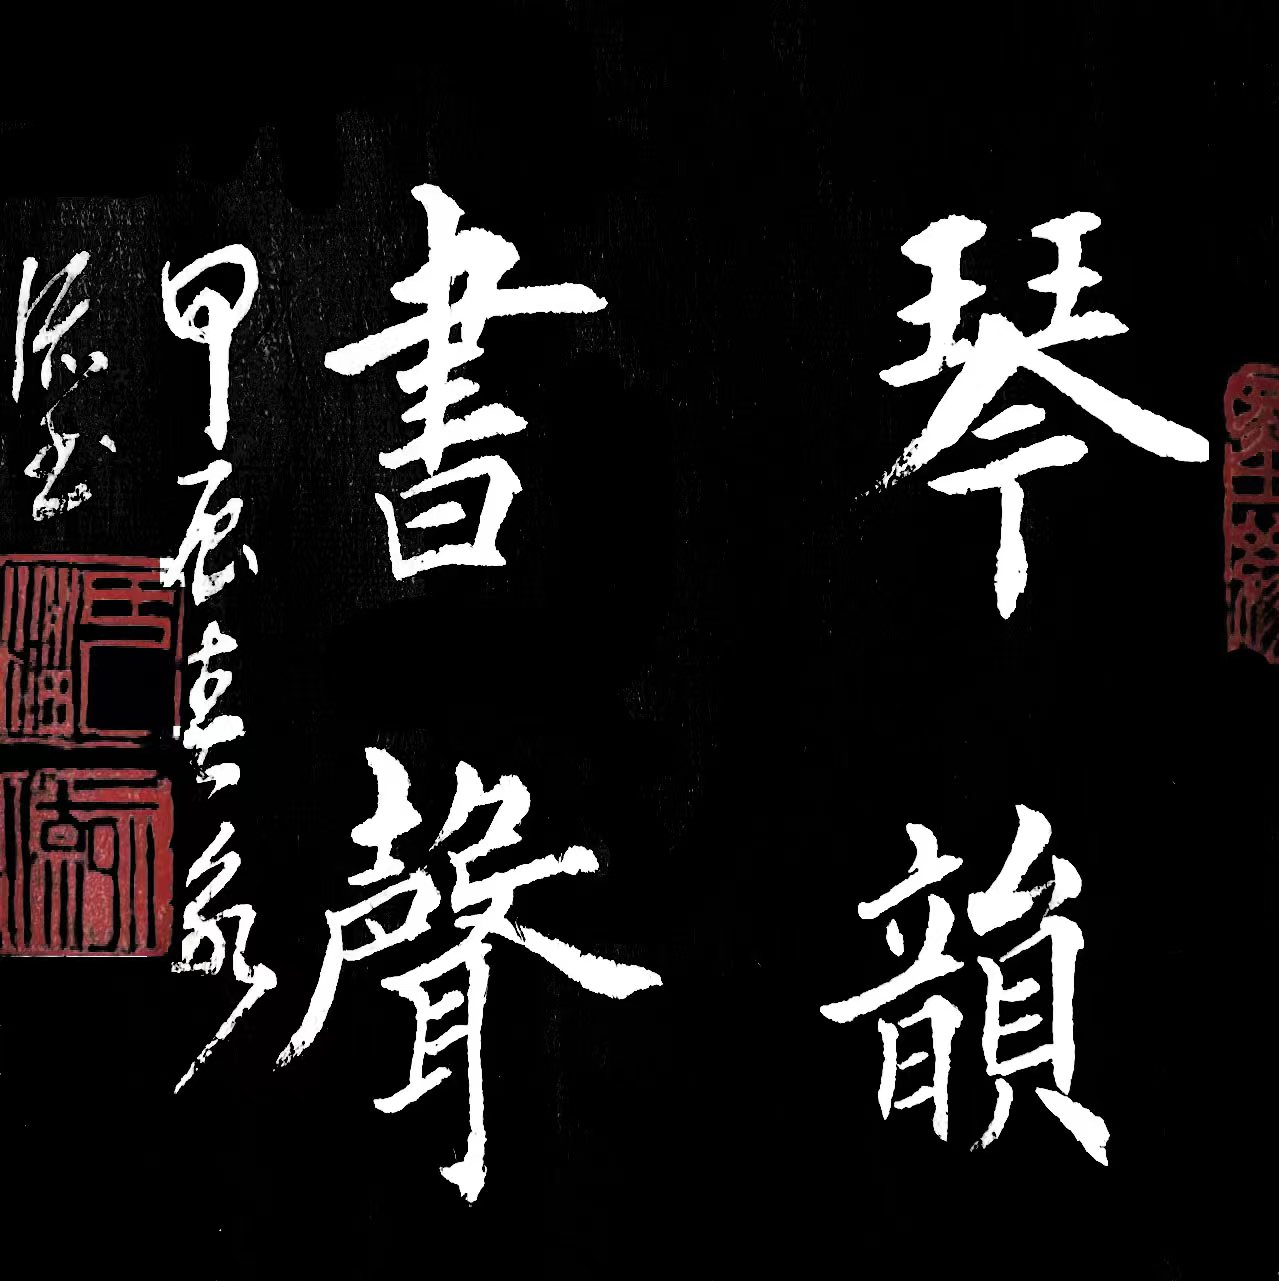 琴韻
書聲
甲辰春